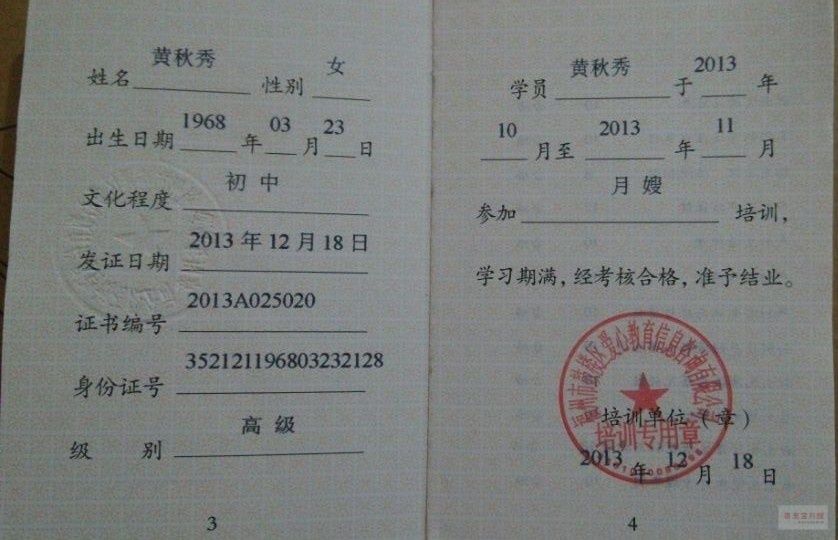 姓名 黄秋秀 性别 女
出生日期 1968 年 03 月 23 日
文化程度 初中
发证日期 2013 年 12 月 18 日
证书编号 2013A025020
身份证号 352121196803232128
级别 高级
3
学员 黄秋秀 于 2013 年
10 月至 2013 年 11 月
参加 月嫂 培训，
学习期满，经考核合格，准予结业。
福州市鼓楼区爱心教育信息咨询有限公司
培训单位（章）
培训专用章
2013 年 12 月 18 日
4